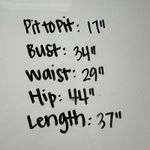 Pit to Pit: 17"
Bust: 34"
Waist: 29"
Hip: 44"
Length: 37"